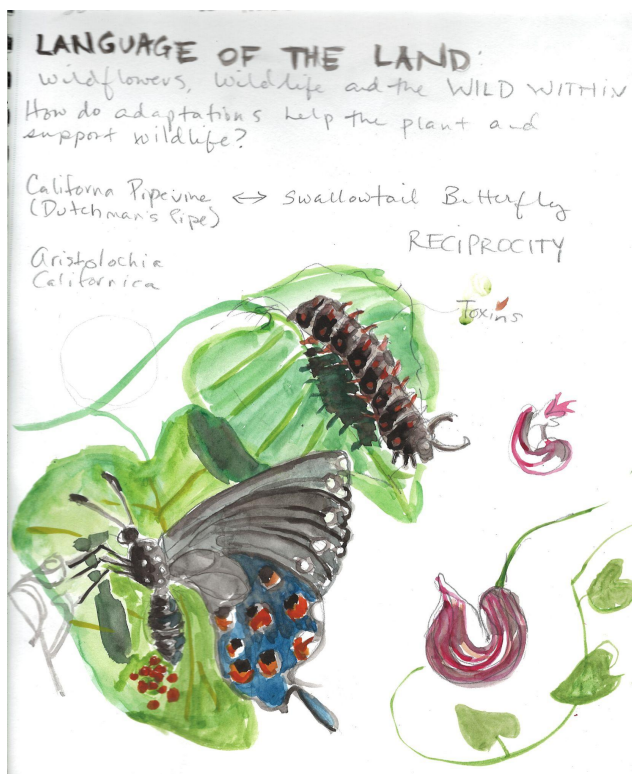 LANGUAGE OF THE LAND:
Wildflowers, Wildlife and the WILD WITHIN
How do adaptations help the plant and
support wildlife?
Californa Pipevine ↔ Swallowtail Butterfly
(Dutchman's Pipe)
RECIPROCITY
Aristolochia
Californica
Toxins